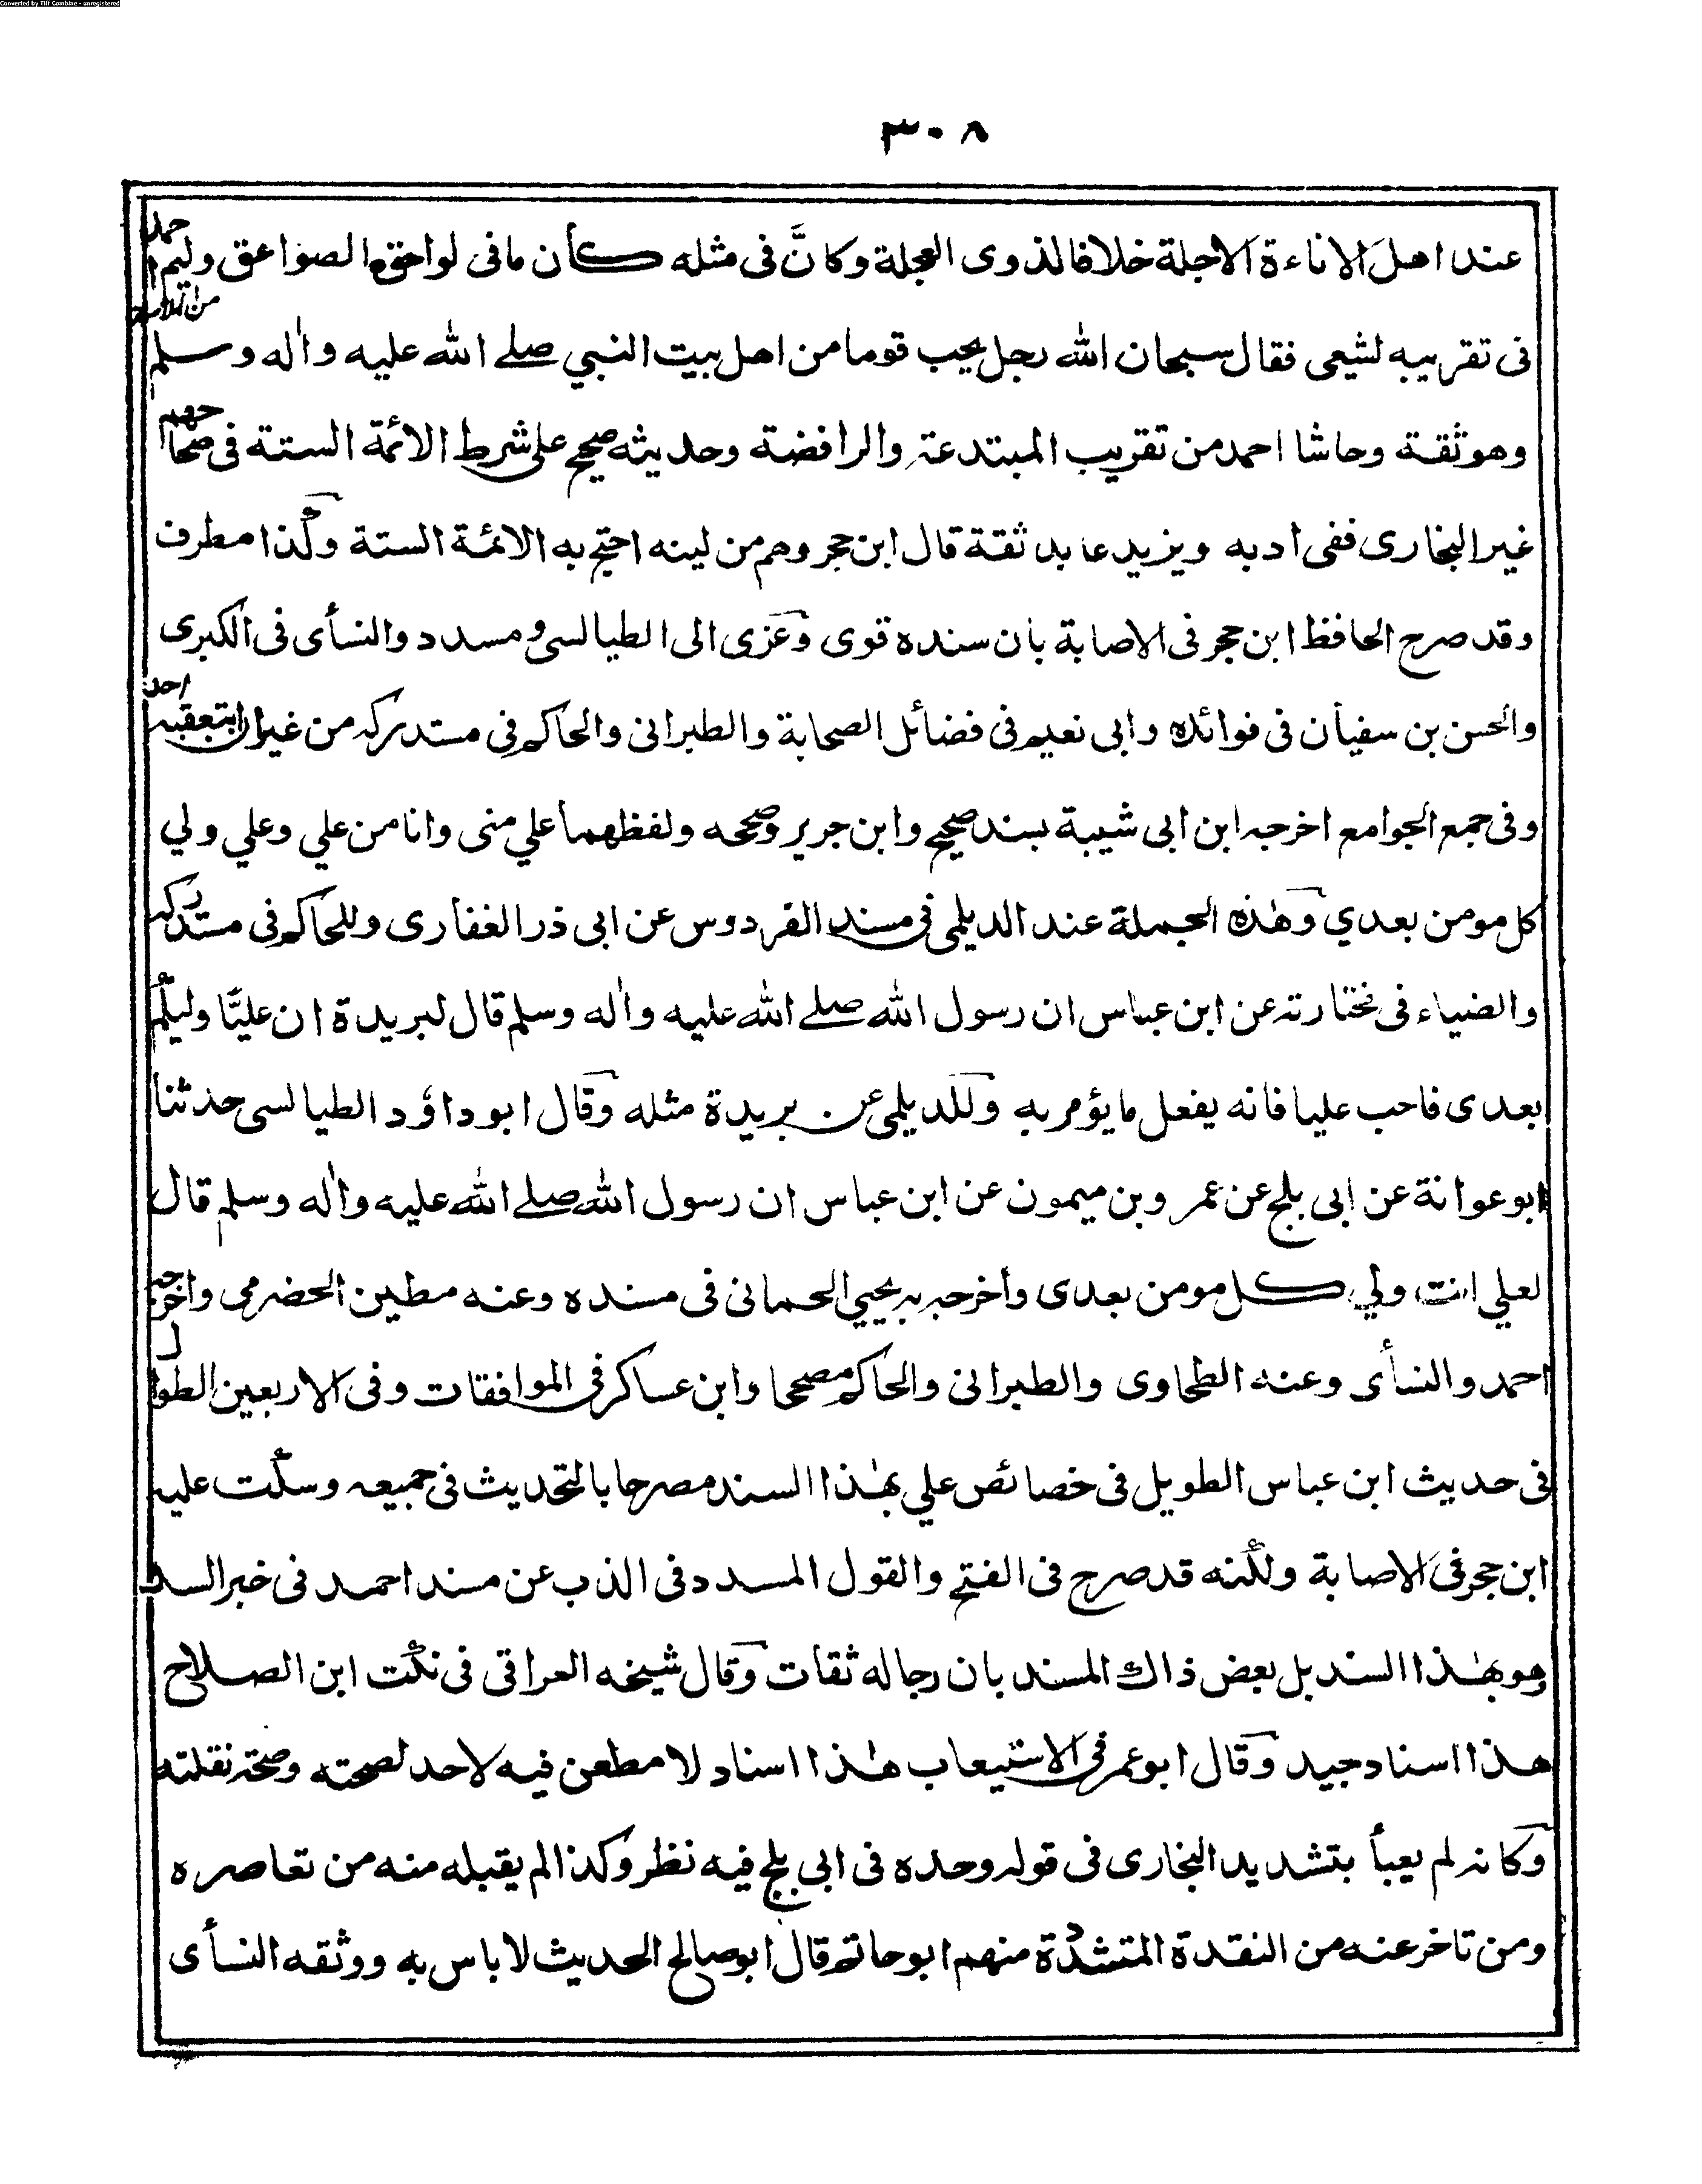 Converted by Tiff Combine - unregistered
٣٠٨
عند اهل الاناءة الاجلة خلافا لذوى العجلة وكانَّ فى مثله كأن مافى لواحق الصواعق وليم احمد
فى تقريبه لشيعى فقال سبحان الله رجل يحب قوما من اهل بيت النبي صلے الله عليه واٰله وسلم
وهو ثقة وحاشا احمد من تقريب المبتدعة والرافضة وحديثه صحيح على شرط الائمة الستة فى صحاحهم
غير البخارى ففى ادبه ويزيد عابد ثقة قال ابن حجر وهم من لينه احتج به الائمة الستة وكذا مطرف
وقد صرح الحافظ ابن حجر فى الاصابة بان سنده قوى وعزى الى الطيالسى ومسدد والنسأى فى الكبرى
والحسن بن سفيان فى فوائده وابى نعيم فى فضائل الصحابة والطبرانى والحاكم فى مستدركه من غير ان يتعقبه احد
وفى جمع الجوامع اخرجه ابن ابى شيبة بسند صحيح وابن جرير وصححه ولفظهما علي منى وانا من علي وعلي ولي
كل مومن بعدي وهٰذه الجملة عند الديلمى فى مسند الفردوس عن ابى ذر الغفارى وللحاكم فى مستدركه
والضياء فى مختارته عن ابن عباس ان رسول الله صلے الله عليه واٰله وسلم قال لبريدة ان عليًّا وليكم
بعدى فاحب عليا فانه يفعل ما يؤمر به وللديلمى عن بريدة مثله وقال ابو داؤد الطيالسى حدثنا
ابو عوانة عن ابى بلج عن عمرو بن ميمون عن ابن عباس ان رسول الله صلے الله عليه واٰله وسلم قال
لعلي انت ولي كل مومن بعدى وأخرجه به يحيي الحمانى فى مسنده وعنه مطين الحضرمى واخرجه
احمد والنسأى وعنه الطحاوى والطبرانى والحاكم مصححا وابن عساكر فى الموافقات وفى الاربعين الطوال
فى حديث ابن عباس الطويل فى خصائص علي بهٰذا السند مصرحا بالتحديث فى جميعه وسكت عليه
ابن حجر فى الاصابة ولكنه قد صرح فى الفتح والقول المسدد فى الذب عن مسند احمد فى خبر السد
وهو بهٰذا السند بل بعض ذاك المسند بان رجاله ثقات وقال شيخه العراقى فى نكت ابن الصلاح
هذا اسناد جيد وقال ابو عمر فى الاستيعاب هٰذا اسناد لا مطعن فيه لاحد لصحته وصحة نقلته
وكانه لم يعبأ بتشديد البخارى فى قوله وحده فى ابى بلج فيه نظر وكذا لم يقبله منه من تعاصره
ومن تاخر عنه من النقدة المتشددة منهم ابو حاتم قال ابو صالح الحديث لا باس به ووثقه النسأى